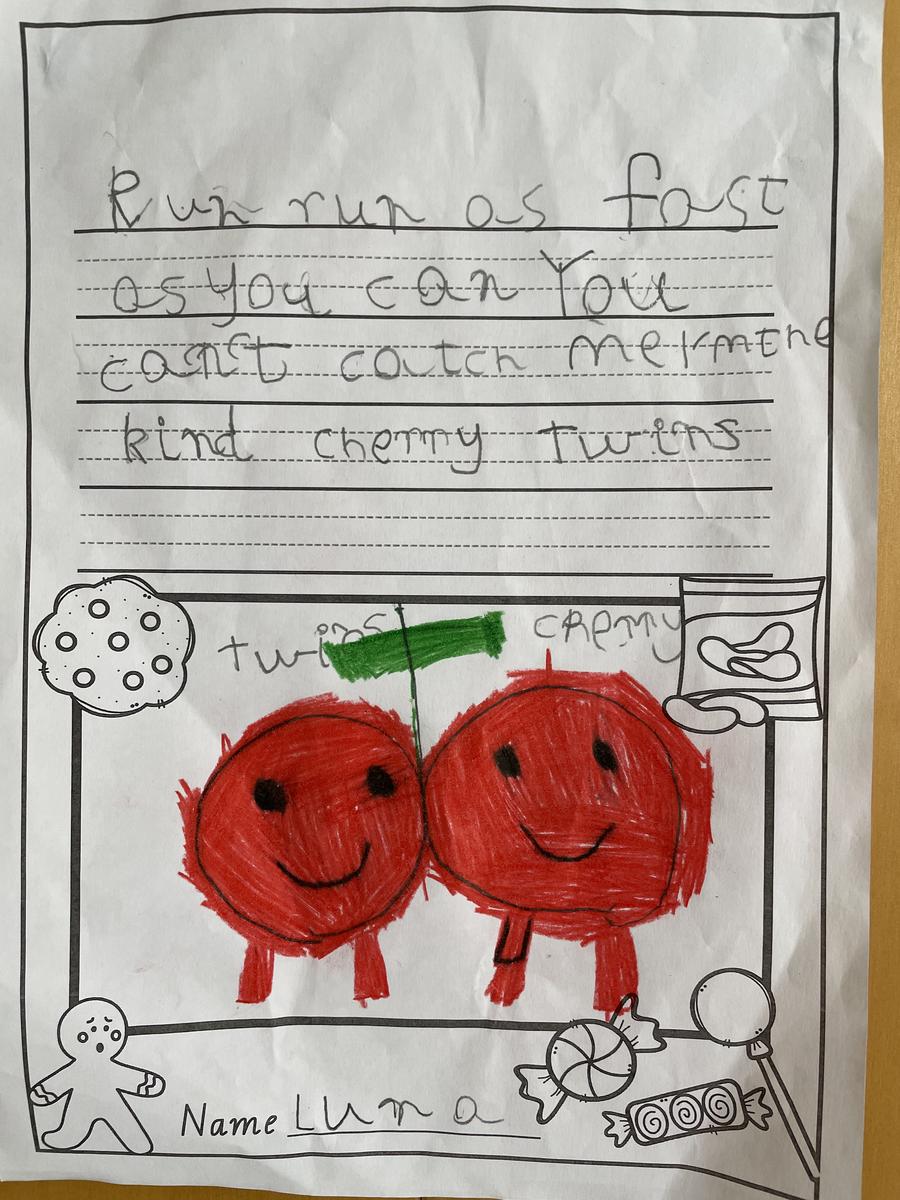 Run run as fast
as you can You
can't catch me I'm the
kind cherry twins
twins cherry
Name Luna